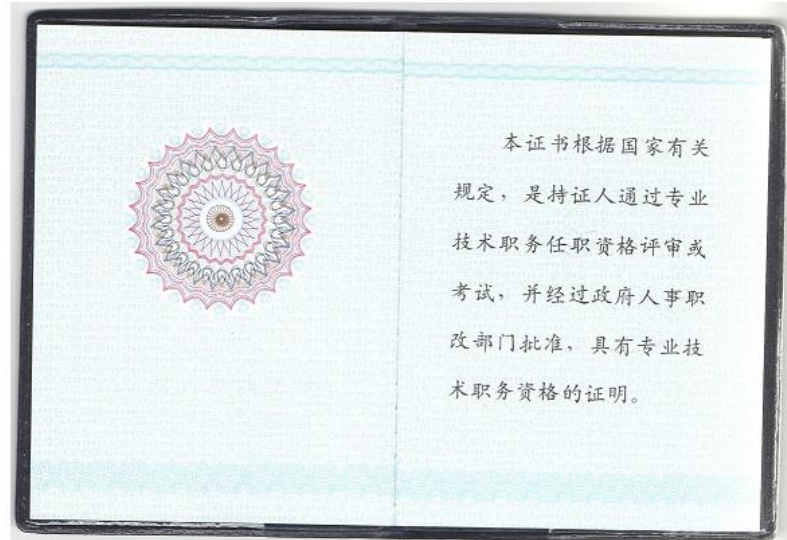 本证书根据国家有关
规定，是持证人通过专业
技术职务任职资格评审或
考试，并经过政府人事职
改部门批准，具有专业技
术职务资格的证明。